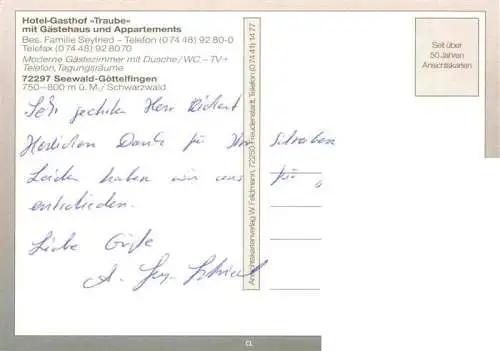 Hotel-Gasthof »Traube«
mit Gästehaus und Appartements
Bes. Familie Seyfried – Telefon (0 74 48) 92 80-0
Telefax (0 74 48) 92 80 70
Moderne Gästezimmer mit Dusche/WC – TV +
Telefon, Tagungsräume
72297 Seewald-Göttelfingen
750–800 m ü. M./Schwarzwald
Sehr geehrter Herr
Herzlichen Dank für Ihr Schreiben
Leider haben wir uns für
entschieden.
Liebe Grüße
Ansichtskartenverlag W. Feldmann, 72250 Freudenstadt, Telefon (0 74 41) 14 77
Seit über
50 Jahren
Ansichtskarten
CL